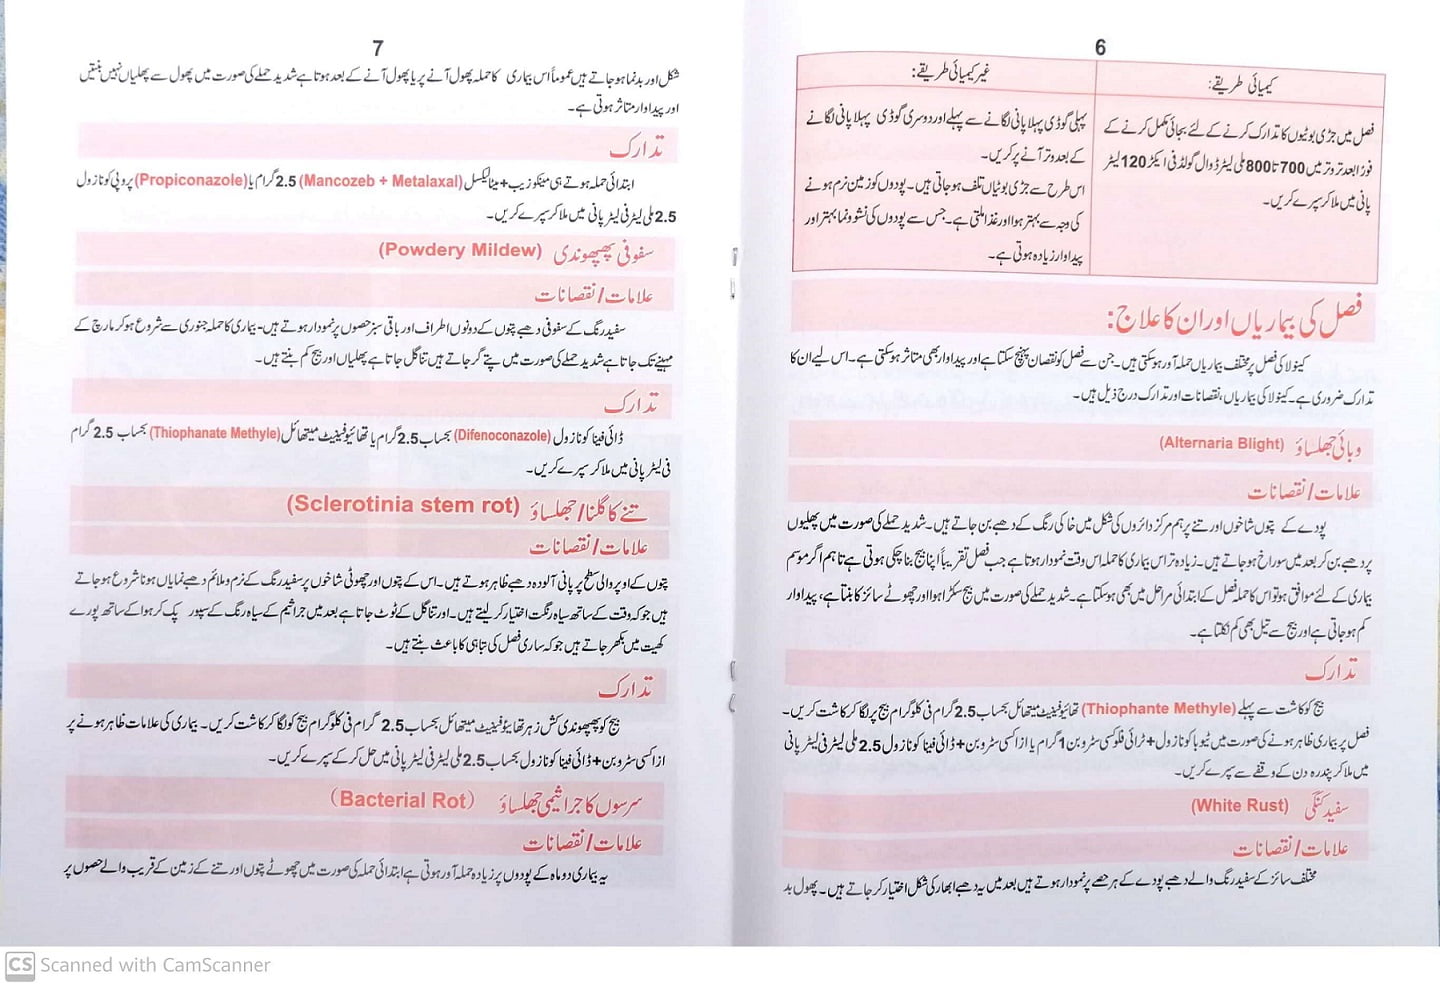 6
کیمیائی طریقے:
غیر کیمیائی طریقے:
فصل میں جڑی بوٹیوں کا تدارک کرنے کے لئے بجائی مکمل کرنے کے
فورا بعد تر وتر میں 700 تا 800 ملی لیٹر ڈوال گولڈ فی ایکڑ 120 لیٹر
پانی میں ملا کر سپرے کریں۔
پہلی گوڈی پہلا پانی لگانے سے پہلے اور دوسری گوڈی پہلا پانی لگانے
کے بعد وتر آنے پر کریں۔
اس طرح سے جڑی بوٹیاں تلف ہو جاتی ہیں۔ پودوں کو زمین نرم ہونے
کی وجہ سے بہتر ہوا اور غذا ملتی ہے۔ جس سے پودوں کی نشوونما بہتر اور
پیداوار زیادہ ہوتی ہے۔
فصل کی بیماریاں اور ان کا علاج:
کینولا کی فصل پر مختلف بیماریاں حملہ آور ہو سکتی ہیں۔ جن سے فصل کو نقصان پہنچ سکتا ہے اور پیداوار بھی متاثر ہو سکتی ہے۔ اس لیے ان کا
تدارک ضروری ہے۔ کینولا کی بیماریاں، نقصانات اور تدارک درج ذیل ہیں۔
وبائی جھلساؤ (Alternaria Blight)
علامات/نقصانات
پودے کے پتوں شاخوں اور تنے پر ہم مرکز دائروں کی شکل میں خاکی رنگ کے دھبے بن جاتے ہیں۔ شدید حملے کی صورت میں پھلیوں
پر دھبے بن کر بعد میں سوراخ ہو جاتے ہیں۔ زیادہ تر اس بیماری کا حملہ اس وقت نمودار ہوتا ہے جب فصل تقریباً اپنا بیج بنا چکی ہوتی ہے تاہم اگر موسم
بیماری کے لئے موافق ہو تو اس کا حملہ فصل کے ابتدائی مراحل میں بھی ہو سکتا ہے۔ شدید حملے کی صورت میں بیج سکڑا ہوا اور چھوٹے سائز کا بنتا ہے، پیداوار
کم ہو جاتی ہے اور بیج سے تیل بھی کم نکلتا ہے۔
تدارک
بیج کو کاشت سے پہلے (Thiophante Methyle) تھائیوفینیٹ میتھائل بحساب 2.5 گرام فی کلوگرام بیج پر لگا کر کاشت کریں۔
فصل پر بیماری ظاہر ہونے کی صورت میں ٹیوبا کونازول + ٹرائی فلوکسی سٹروبن 1 گرام یا ازاکسی سٹروبن + ڈائی فینا کونازول 2.5 ملی لیٹر فی لیٹر پانی
میں ملا کر پندرہ دن کے وقفے سے سپرے کریں۔
سفید کنگی (White Rust)
علامات/نقصانات
مختلف سائز کے سفید رنگ والے دھبے پودے کے ہر حصے پر نمودار ہوتے ہیں بعد میں یہ دھبے ابھار کی شکل اختیار کر جاتے ہیں۔ پھول بد
7
شکل اور بدنما ہو جاتے ہیں عموماً اس بیماری کا حملہ پھول آنے پر یا پھول آنے کے بعد ہوتا ہے شدید حملے کی صورت میں پھول سے پھلیاں نہیں بنتیں
اور پیداوار متاثر ہوتی ہے۔
تدارک
ابتدائی حملہ ہوتے ہی مینکوزیب + میٹالیکسل (Mancozeb + Metalaxal) 2.5 گرام یا (Propiconazole) پروپی کونازول
2.5 ملی لیٹر فی لیٹر پانی میں ملا کر سپرے کریں۔
سفوفی پھپھوندی (Powdery Mildew)
علامات/نقصانات
سفید رنگ کے سفوفی دھبے پتوں کے دونوں اطراف اور باقی سبز حصوں پر نمودار ہوتے ہیں۔ بیماری کا حملہ جنوری سے شروع ہو کر مارچ کے
مہینے تک جاتا ہے شدید حملے کی صورت میں پتے گر جاتے ہیں تنا گل جاتا ہے پھلیاں اور بیج کم بنتے ہیں۔
تدارک
ڈائی فینا کونازول (Difenoconazole) بحساب 2.5 گرام یا تھائیوفینیٹ میتھائل (Thiophanate Methyle) بحساب 2.5 گرام
فی لیٹر پانی میں ملا کر سپرے کریں۔
تنے کا گلنا/جھلساؤ (Sclerotinia stem rot)
علامات/نقصانات
پتوں کے اوپر والی سطح پر پانی آلودہ دھبے ظاہر ہوتے ہیں۔ اس کے پتوں اور چھوٹی شاخوں پر سفید رنگ کے نرم و ملائم دھبے نمایاں ہونا شروع ہو جاتے
ہیں جو کہ وقت کے ساتھ سیاہ رنگت اختیار کر لیتے ہیں۔ اور تنا گل کے ٹوٹ جاتا ہے بعد میں جراثیم کے سیاہ رنگ کے سپور پک کر ہوا کے ساتھ پورے
کھیت میں بکھر جاتے ہیں جو کہ ساری فصل کی تباہی کا باعث بنتے ہیں۔
تدارک
بیج کو پھپھوندی کش زہر تھائیوفینیٹ میتھائل بحساب 2.5 گرام فی کلوگرام بیج کو لگا کر کاشت کریں۔ بیماری کی علامات ظاہر ہونے پر
ازاکسی سٹروبن + ڈائی فینا کونازول بحساب 2.5 ملی لیٹر فی لیٹر پانی میں حل کر کے سپرے کریں۔
سرسوں کا جراثیمی جھلساؤ (Bacterial Rot)
علامات/نقصانات
یہ بیماری دو ماہ کے پودوں پر زیادہ حملہ آور ہوتی ہے ابتدائی حملہ کی صورت میں چھوٹے پتوں اور تنے کے زمین کے قریب والے حصوں پر
CS Scanned with CamScanner